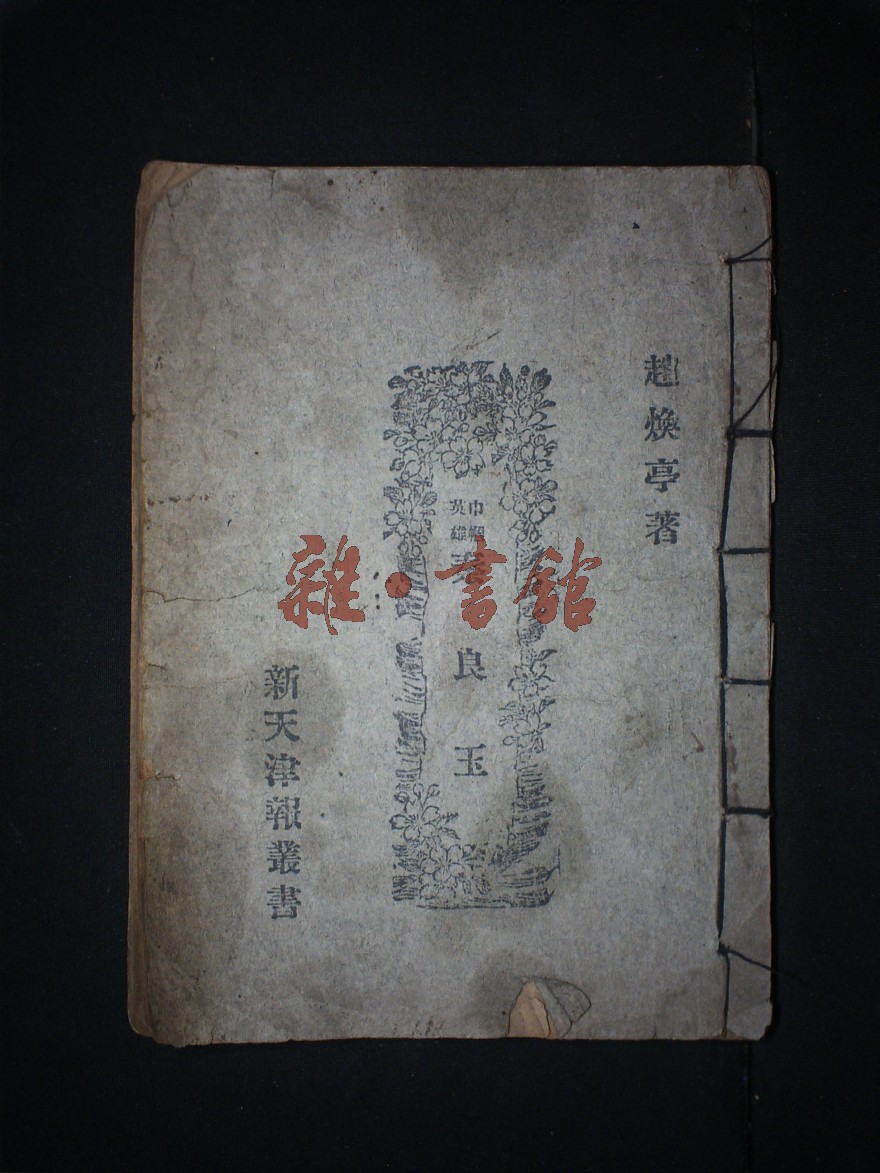 趙煥亭著
巾幗
英雄
秦良玉
新天津報叢書
雜·書館